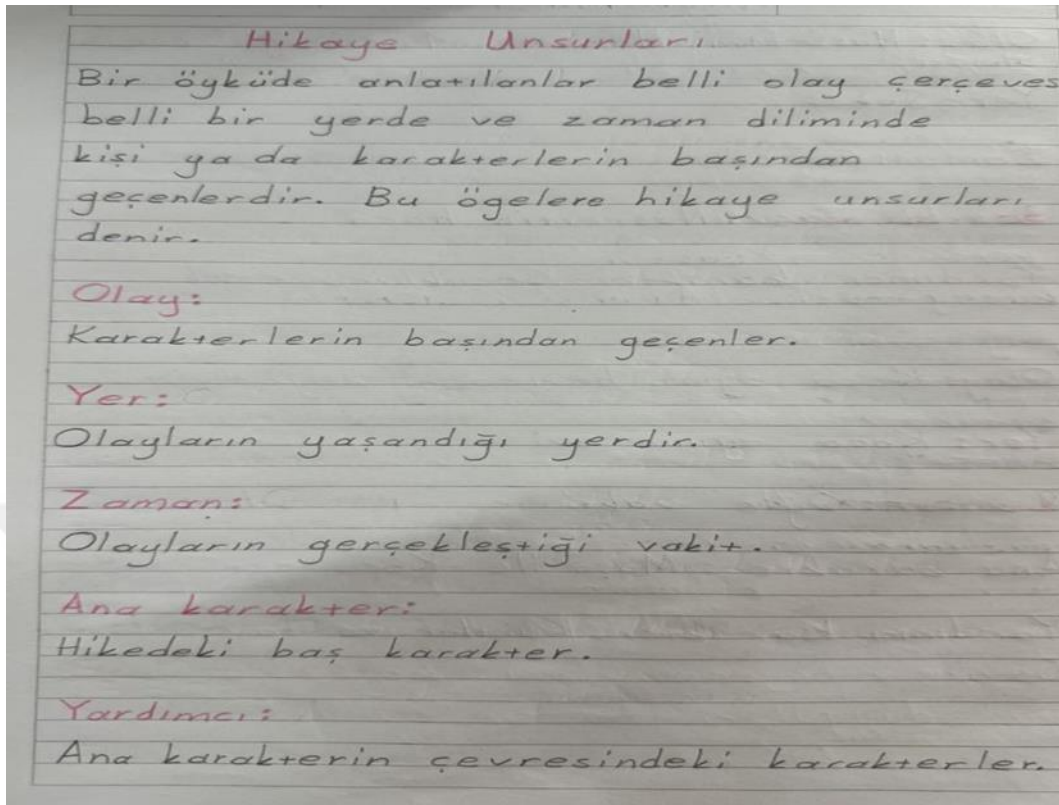 Hikaye Unsurları
Bir öyküde anlatılanlar belli olay çerçeves
belli bir yerde ve zaman diliminde
kişi ya da karakterlerin başından
geçenlerdir. Bu ögelere hikaye unsurları
denir.
Olay:
Karakterlerin başından geçenler.
Yer:
Olayların yaşandığı yerdir.
Zaman:
Olayların gerçekleştiği vakit.
Ana karakter:
Hikedeki baş karakter.
Yardımcı:
Ana karakterin çevresindeki karakterler.